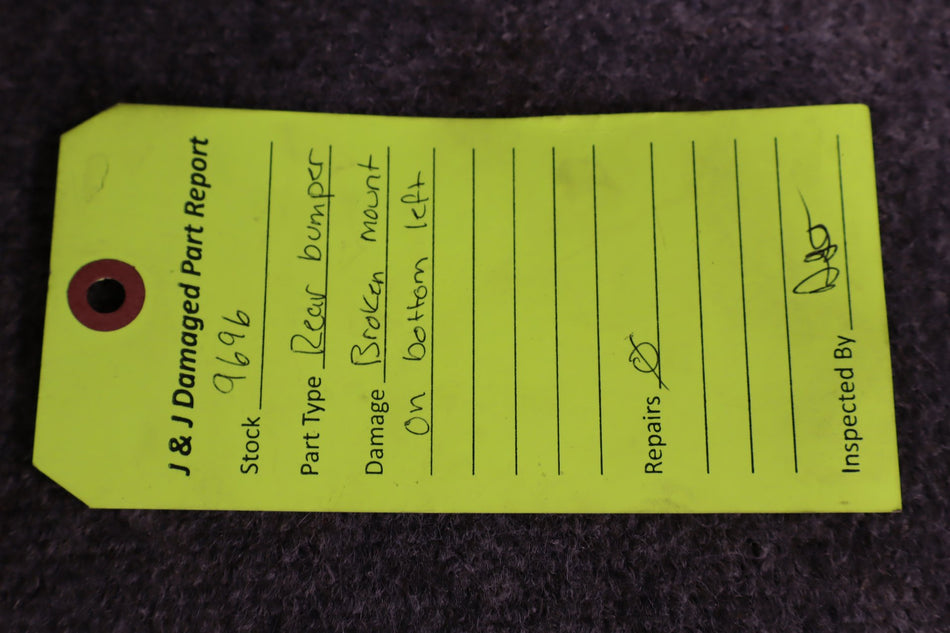 J & J Damaged Part Report
Stock 9696
Part Type Rear bumper
Damage Broken mount
on bottom left
Repairs Ø
Inspected By